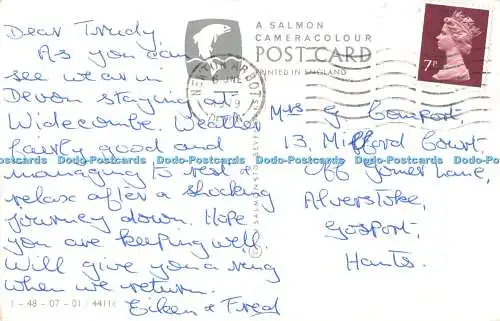 Dear Trudy
As you can
see we are in
Devon staying at
Widecombe. Weather
fairly good and
managing to rest &
relax after a shocking
journey down. Hope
you are keeping well.
Will give you a ring
when we return.
Eileen & Fred
1-48-07-01 / 4411c
A SALMON
CAMERACOLOUR
POST CARD
PRINTED IN ENGLAND
NEWTON ABBOT
7P
Mrs G
13, Milford Court,
Off Gomer Lane,
Alverstoke,
Gosport,
Hants.
Dodo-Postcards Dodo-Postcards Dodo-Postcards Dodo-Postcards Dodo-Postcards